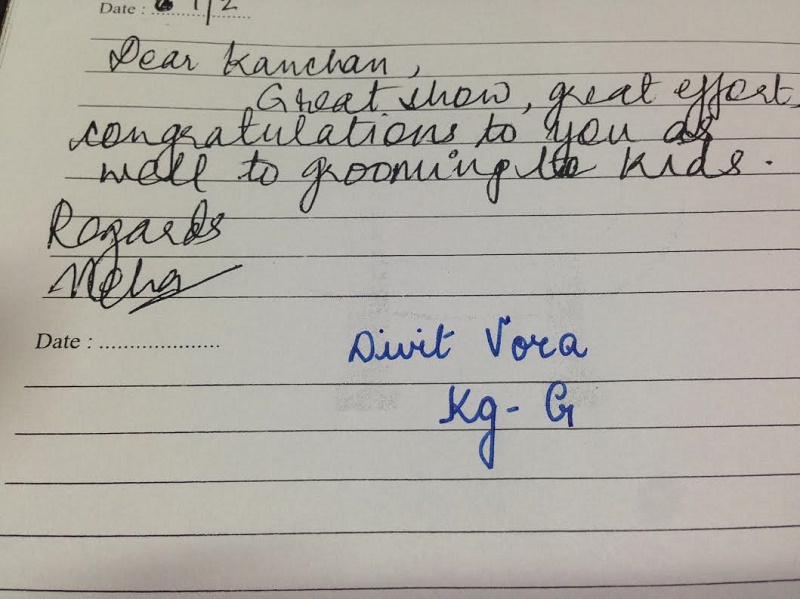 Date : 1/2
Dear Kanchan,
Great show, great effort,
congratulations to you as
well to grooming kids.
Regards
Neha
Date : .....................
Divit Vora
Kg- G